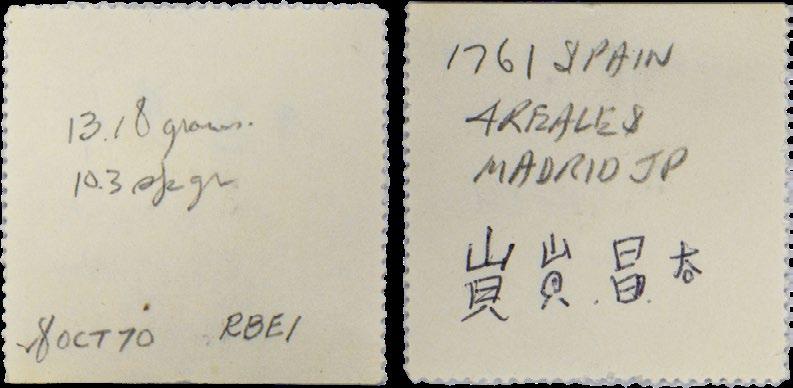 13.18 grams.
10.3 sp gr
8 OCT 70 RBE1
1761 SPAIN
4 REALES
MADRID JP
昌